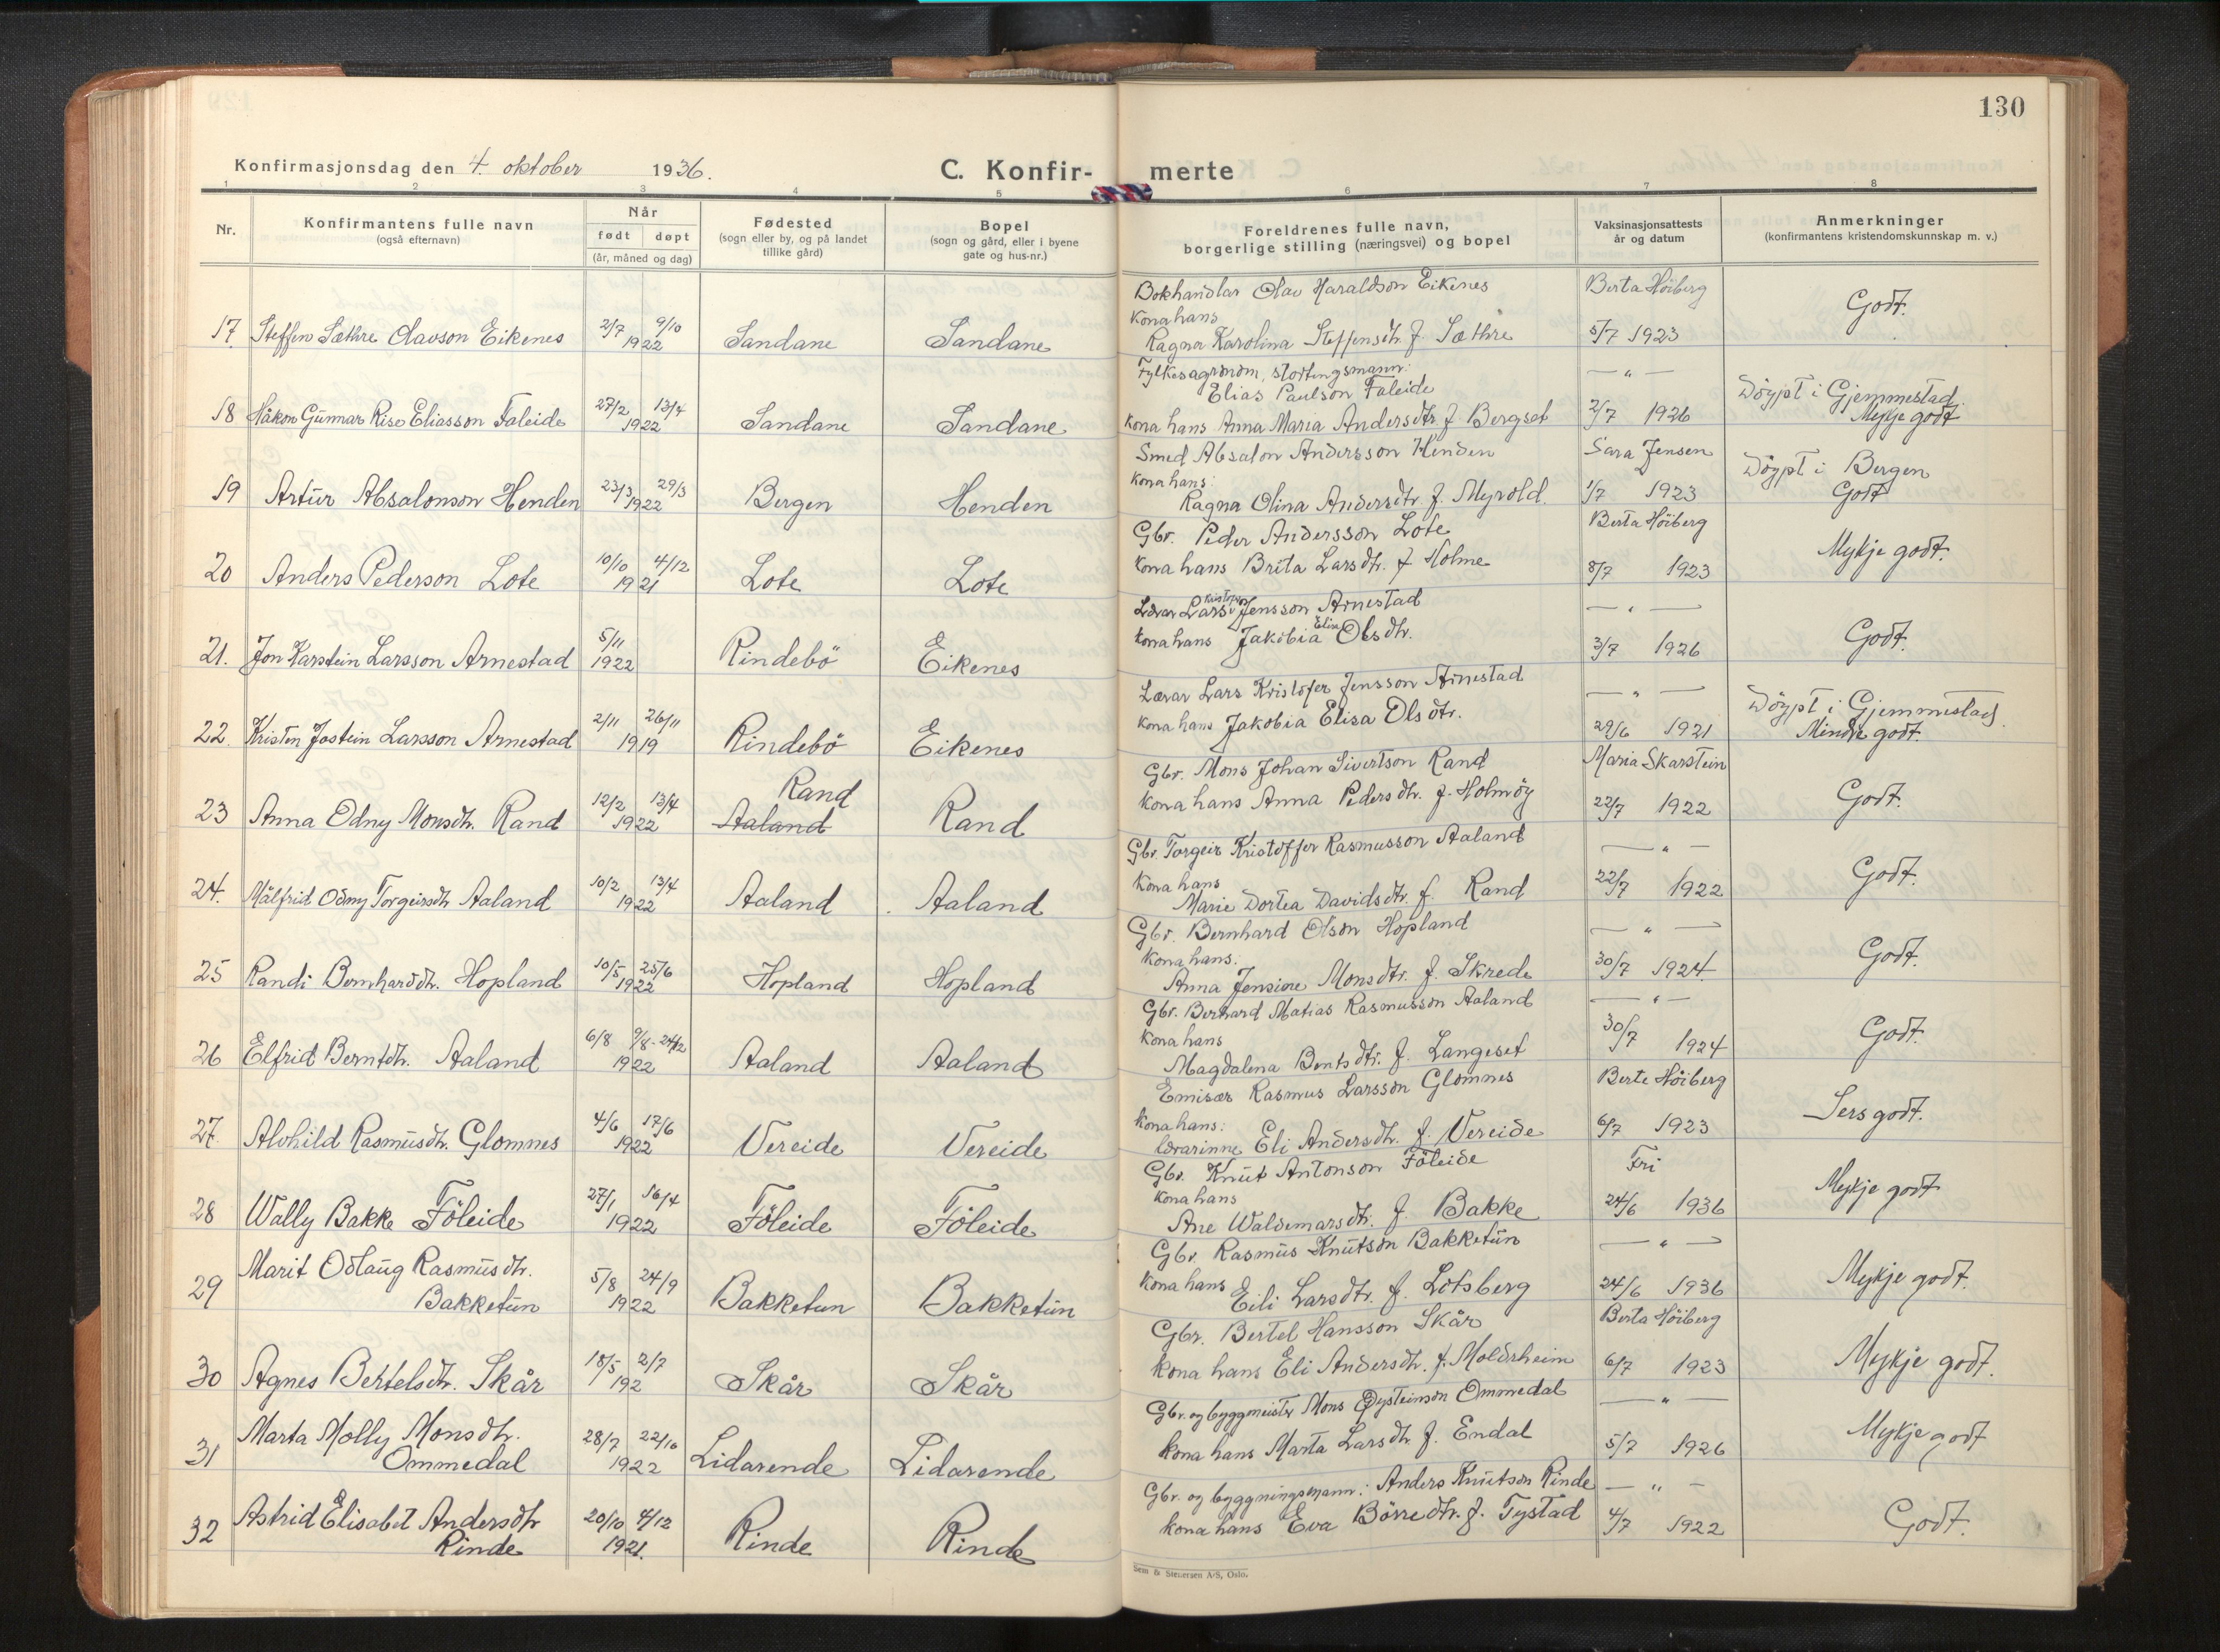 130
Konfirmasjonsdag den 4. oktober 1936.
C. Konfir- merte
1 2 3 4 5 6 7 8
Nr.
Konfirmantens fulle navn
(også efternavn)
Når
født døpt
(år, måned og dag)
Fødested
(sogn eller by, og på landet
tillike gård)
Bopel
(sogn og gård, eller i byene
gate og hus-nr.)
Foreldrenes fulle navn,
borgerlige stilling (næringsvei) og bopel
Vaksinasjonsattests
år og datum
Anmerkninger
(konfirmantens kristendomskunnskap m. v.)
17. Steffen Sæthre Olavson Eikenes 2/7 9/10 1922 Sandane Sandane
Bokhandlar Olav Haraldson Eikenes
Kona hans
Ragna Karolina Steffensdtr. f. Sæthre
Berta Höiberg
5/7 1923
Godt.
18 Håkon Gunnar Rise Eliasson Faleide 27/2 13/4 1922 Sandane Sandane
Fylkesagronom, stortingsmann:
Elias Paulson Faleide
Kona hans Anna Maria Andersdtr. f. Bergset
— " —
2/7 1926
Döypt i Gjemmestad.
Mykje godt
19 Artur Absalonson Henden 23/3 29/3 1922 Bergen Henden
Smed Absalon Andersson Henden
Kona hans:
Ragna Olina Andersdtr. f. Myrold.
Sara Jensen
1/7 1923
Döypt i Bergen
Godt
20 Anders Pederson Lote 10/10 4/12 1921 Lote Lote
Gbr. Peder Andersson Lote
Kona hans Brita Larsdtr. f Holme
Berta Höiberg
8/7 1923
Mykje godt.
21. Jon Karstein Larsson Arnestad 5/11 1922 Rindebö Eikenes
Lærar Lars Kristofer Jensson Arnestad
Kona hans Jakobia Elisa Olsdtr.
— " —
3/7 1926
Godt.
22. Kristen Jostein Larsson Arnestad 2/11 26/11 1919 Rindebö Eikenes
Lærar Lars Kristofer Jensson Arnestad
Kona hans Jakobia Elisa Olsdtr.
— " —
29/6 1921
Döypt i Gjemmestad.
Mindre godt.
23 Anna Odny Monsdtr. Rand 12/2 13/4 1922 Rand Aaland Rand
Gbr. Mons Johan Sivertson Rand
Kona hans Anna Pedersdtr. f. Holmöy
Maria Skarstein
22/7 1922
Godt.
24. Målfrid Odny Torgeirsdtr Aaland 10/2 13/4 1922 Aaland Aaland
Gbr. Torgeir Kristoffer Rasmusson Aaland
Kona hans
Marie Dortea Davidsdtr. f. Rand
— " —
22/7 1922
Godt.
25 Randi Bernharddtr. Hopland 10/5 25/6 1922 Hopland Hopland
Gbr. Bernhard Olson Hopland
Kona hans.
Anna Jensine Monsdtr. f. Skrede
— " —
30/7 1924.
Godt.
26 Elfrid Berntdtr. Aaland 6/8 9/8-24/12 1922 Aaland Aaland
Gbr. Bernhard Matias Rasmusson Aaland
Kona hans
Magdalena Bentsdtr. f. Langeset
— " —
30/7 1924
Godt.
27. Alvhild Rasmusdtr. Glomnes 4/6 17/6 1922 Vereide Vereide
Emisær Rasmus Larsson Glomnes
Kona hans:
lærarinne Eli Andersdtr. f. Vereide
Berte Höiberg
6/7 1923
Sers godt.
28 Wally Bakke Föleide 27/1 16/4 1922 Föleide Föleide
Gbr. Knut Antonson Föleide
Kona hans
Ane Waldemarsdtr. f. Bakke
Fri
24/6 1936
Mykje godt
29 Marit Odlaug Rasmusdtr.
Bakketun 5/8 24/9 1922 Bakketun Bakketun
Gbr. Rasmus Knutson Bakketun
Kona hans Eili Larsdtr. f. Lotsberg
— " —
24/6 1936
Mykje godt.
30 Agnes Bertelsdtr. Skår 18/5 2/7 192 Skår Skår
Gbr. Bertel Hansson Skår
Kona hans Eli Andersdtr. f. Moldrheim
Berta Höiberg
6/7 1923
Mykje godt.
31 Marta Molly Monsdtr.
Ommedal 28/7 22/10 1922 Lidarende Lidarende
Gbr. og byggmeister Mons Øysteinson Ommedal
Kona hans Marta Larsdtr f. Endal
— " —
5/7 1926
Mykje godt
32 Astrid Elisabet Andersdtr
Rinde 20/10 4/12 1921. Rinde Rinde
Gbr. og byggningsmann: Anders Knutson Rinde
Kona hans Eva Börredtr. f. Tystad
— " —
4/7 1922
Godt.
Sem & Stenersen A/S, Oslo.